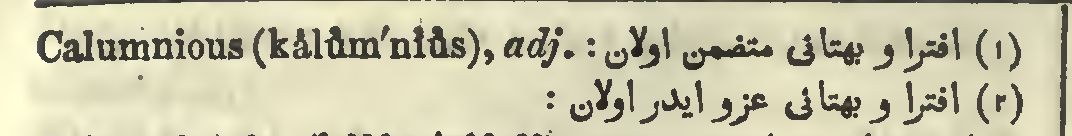 Calumnious (kâlŭm′nĭŭs), adj. : (۱) افترا و بهتانی متضمن اولان
(۲) افترا و بهتانی عزو ایدر اولان :